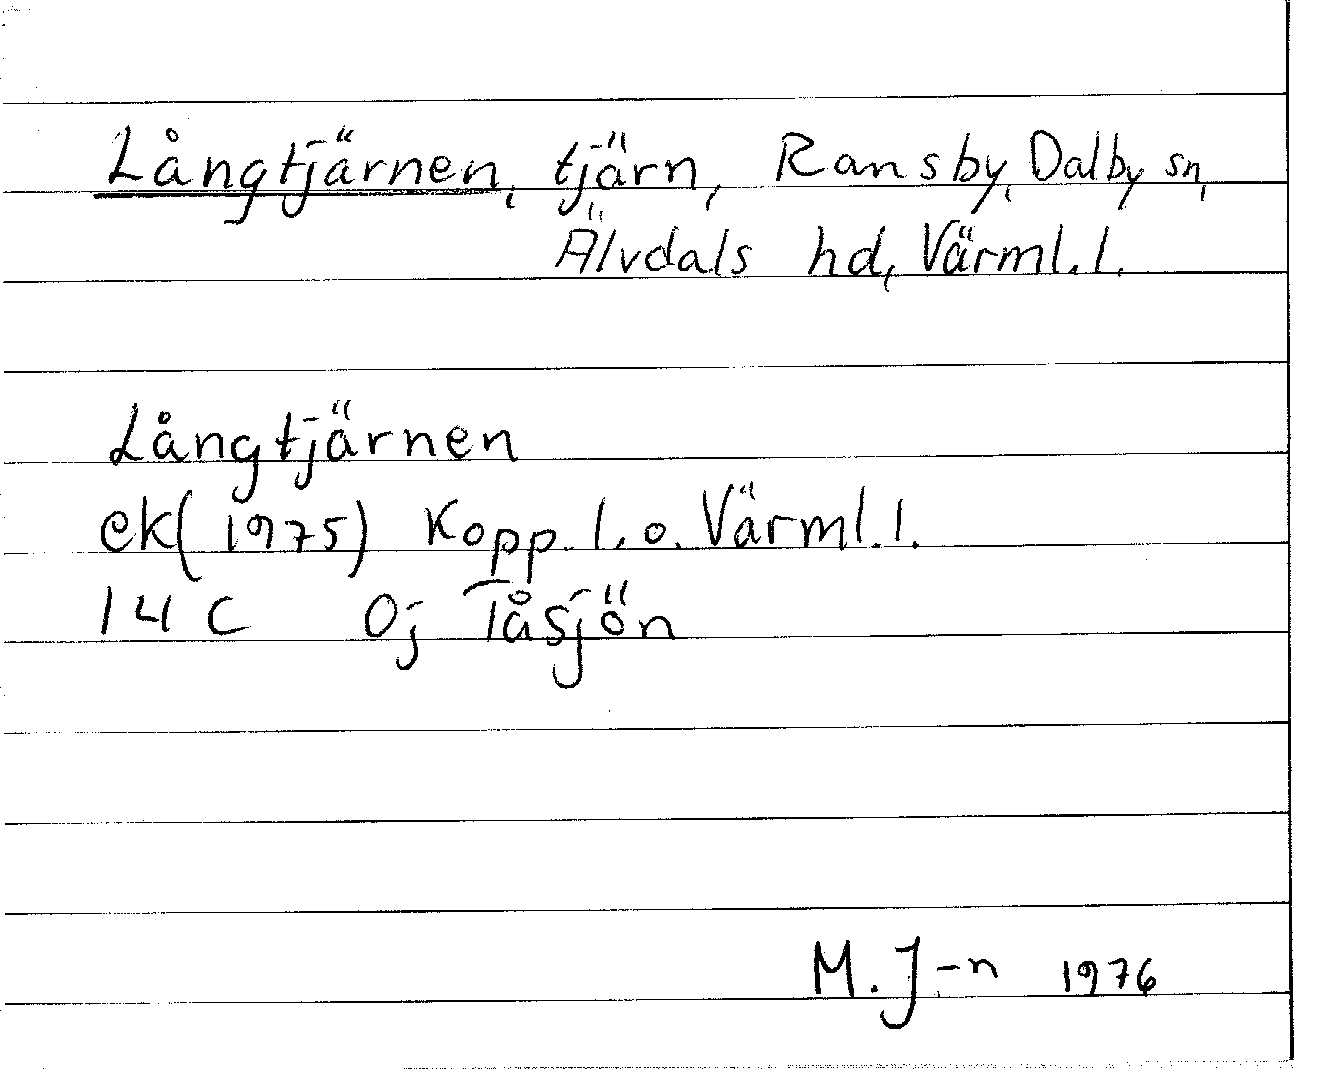 Långtjärnen, tjärn, Ransby, Dalby sn,
Älvdals hd, Värml. l.
Långtjärnen
ek (1975) Kopp. l. o. Värml. l.
14 C 0j Tåsjön
M. J-n 1976